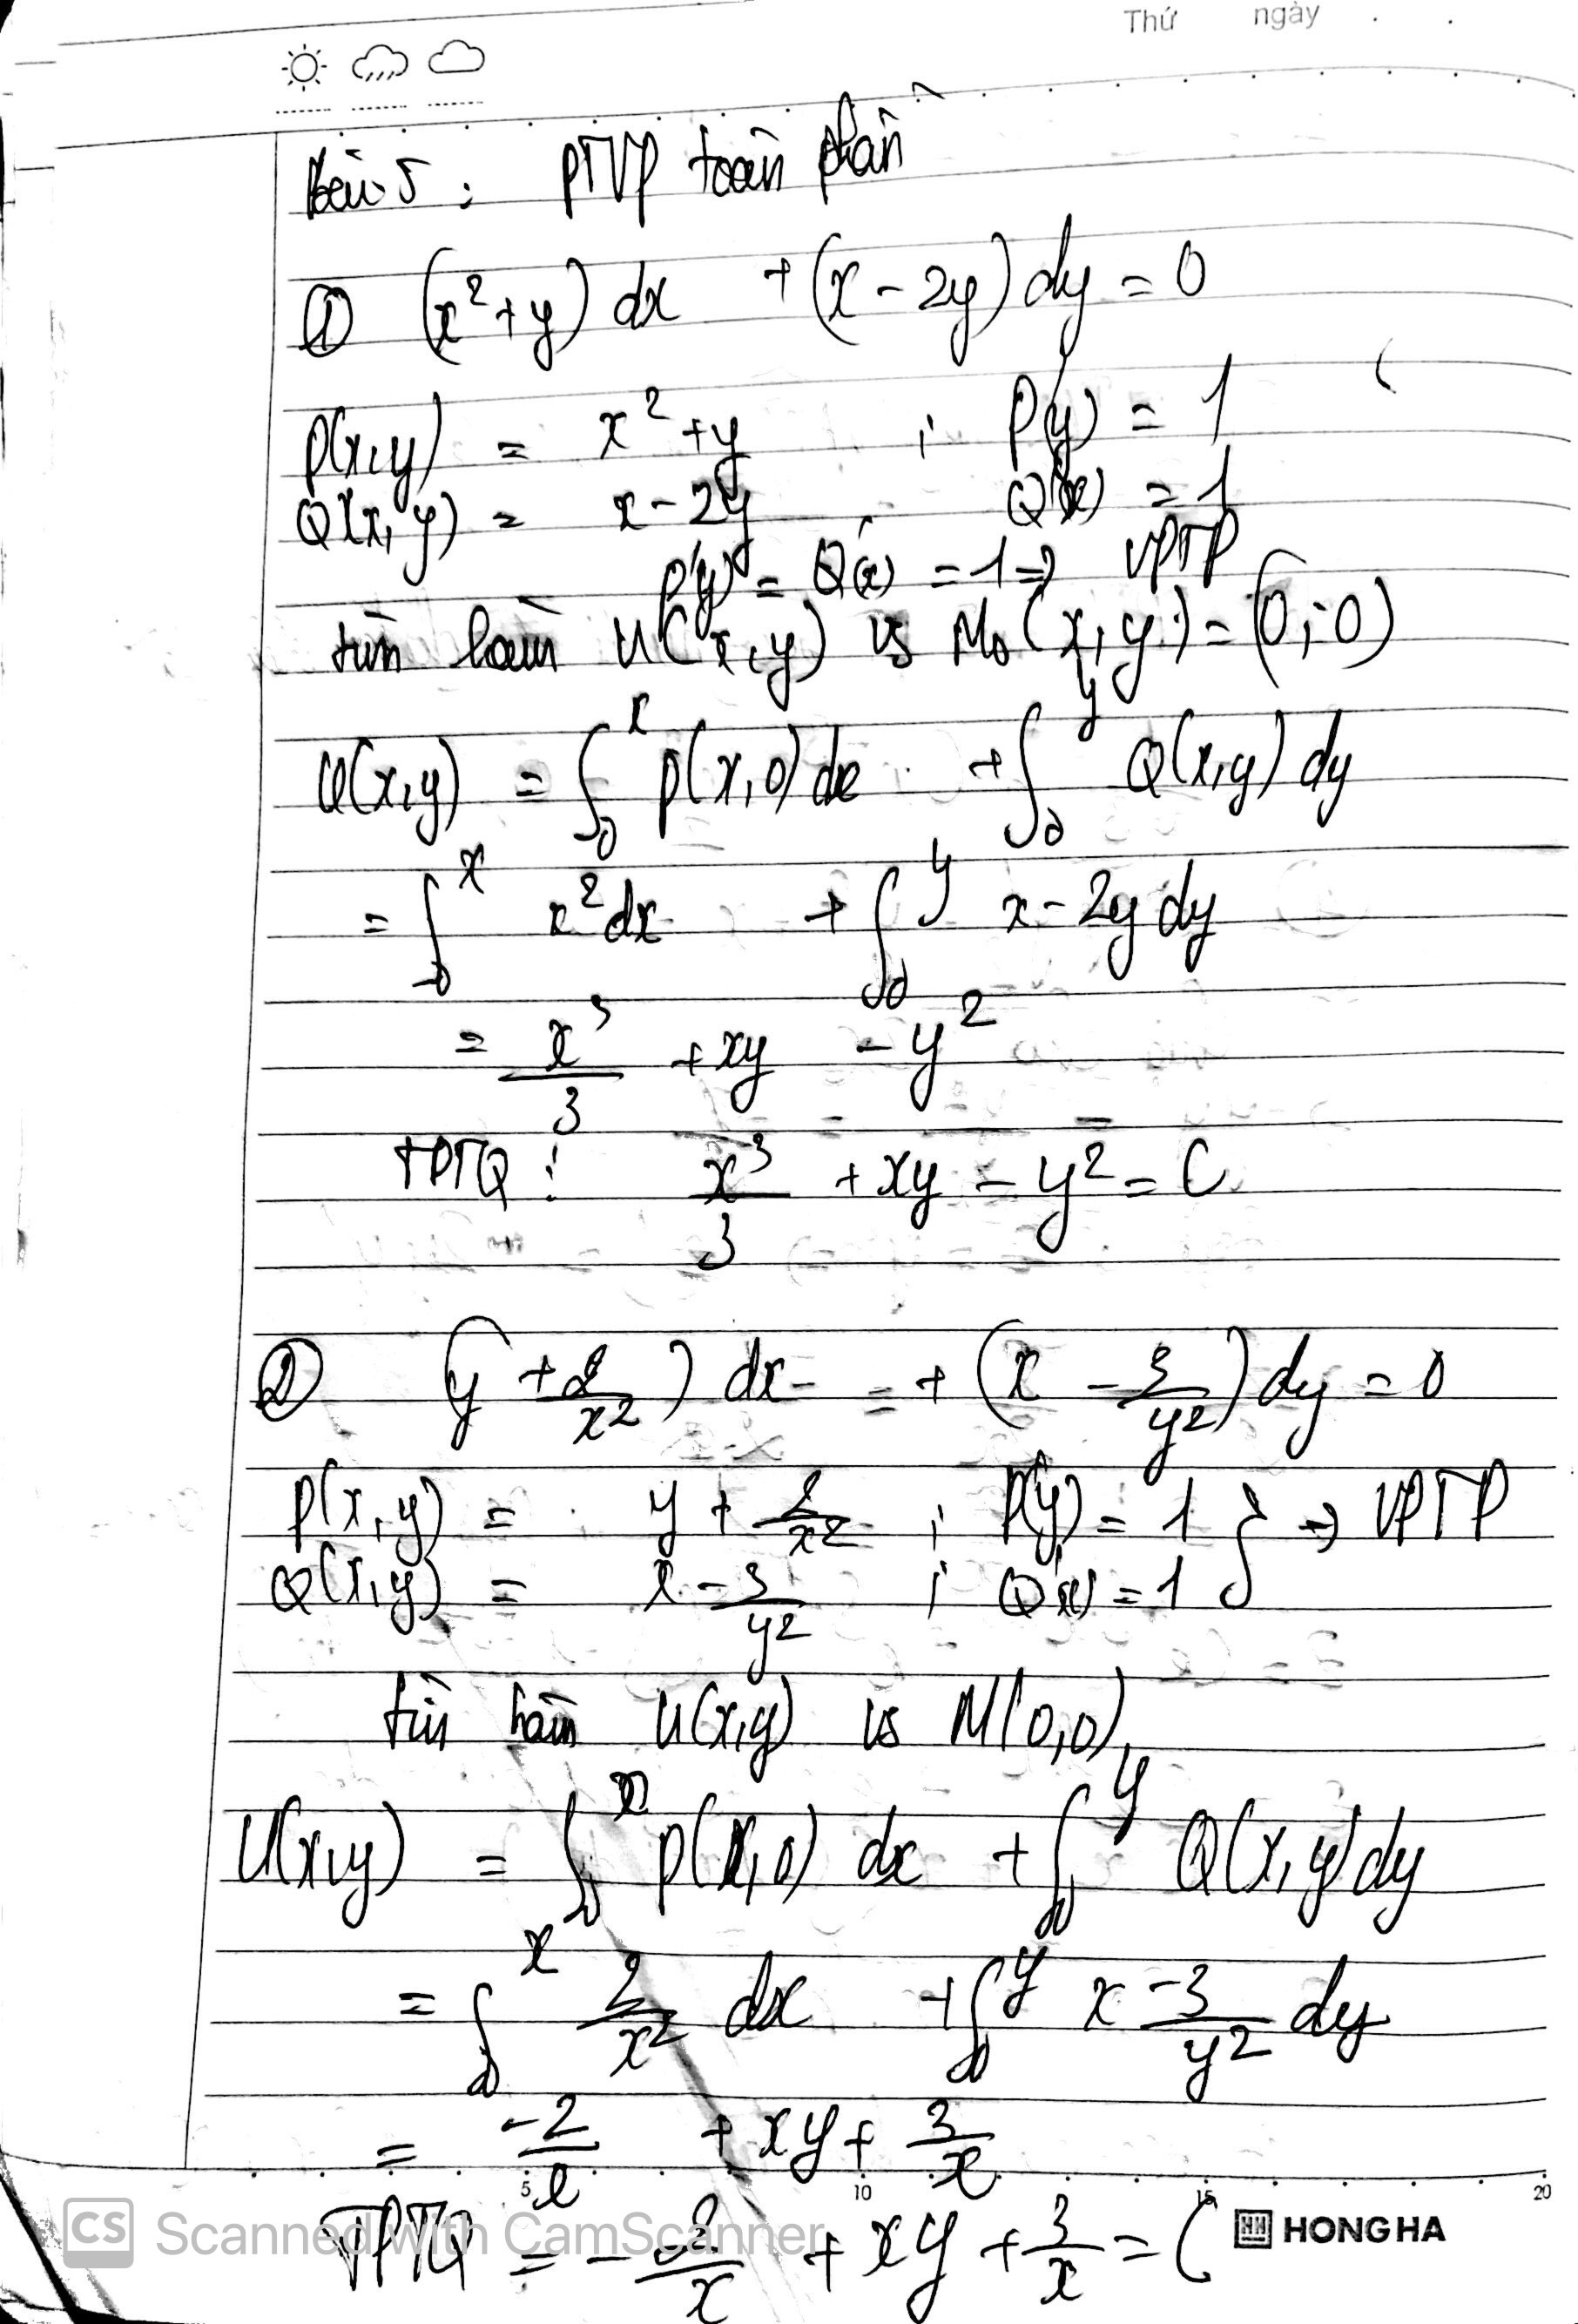 Thứ ngày . .
Bài 5 : PTVP toàn phần
① (x² + y) dx + (x - 2y) dy = 0
P(x,y) = x² + y ; P'(y) = 1
Q(x,y) = x - 2y Q'(x) = 1
P'(y) = Q'(x) = 1 ⇒ VPTP
tìm hàm U(x,y) vs M₀(x,y) = (0;0)
U(x,y) = ∫₀ˣ P(x,0) dx + ∫₀ʸ Q(x,y) dy
= ∫₀ˣ x² dx + ∫₀ʸ x - 2y dy
= x³/3 + xy - y²
TPTQ : x³/3 + xy - y² = C
② (y + 2/x²) dx = + (x - 3/y²) dy = 0
P(x,y) = y + 2/x² ; P'(y) = 1 } ⇒ VPTP
Q(x,y) = x - 3/y² ; Q'(x) = 1
tìm hàm U(x,y) vs M(0,0)
U(x,y) = ∫₀ˣ P(x,0) dx + ∫₀ʸ Q(x,y) dy
= ∫₀ˣ 2/x² dx + ∫₀ʸ x - 3/y² dy
= -2/x + xy + 3/x
5 10 15 20
TPTQ = -2/x + xy + 3/x = C
CS Scanned with CamScanner
HH HONG HA